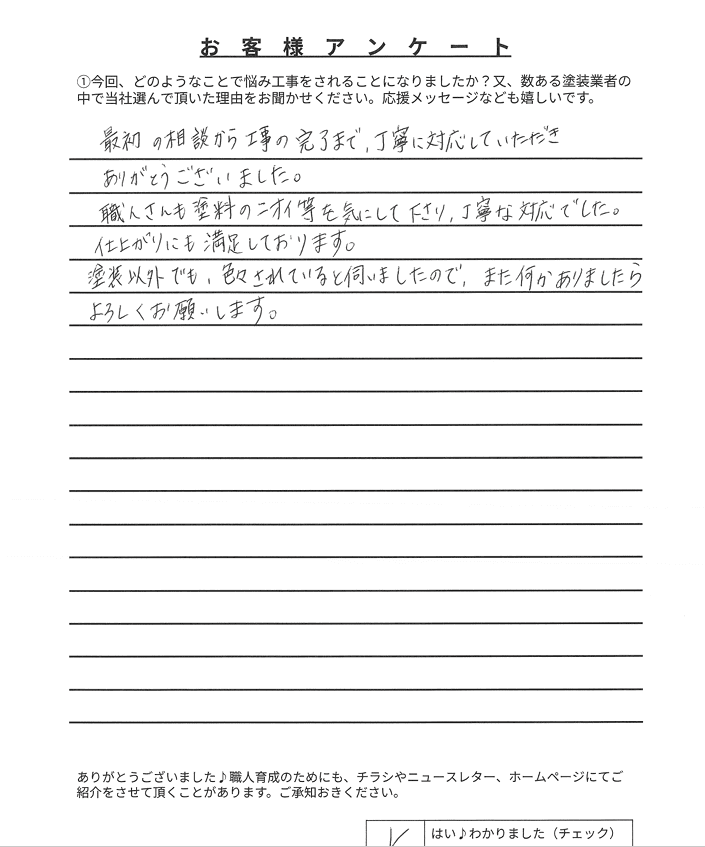 お客様アンケート
①今回、どのようなことで悩み工事をされることになりましたか？又、数ある塗装業者の
中で当社選んで頂いた理由をお聞かせください。応援メッセージなども嬉しいです。
最初の相談から工事の完了まで、丁寧に対応していただき
ありがとうございました。
職人さんも塗料のニオイ等を気にして下さり、丁寧な対応でした。
仕上がりにも満足しております。
塗装以外でも、色々されていると伺いましたので、また何かありましたら
よろしくお願いします。
ありがとうございました♪職人育成のためにも、チラシやニュースレター、ホームページにてご
紹介をさせて頂くことがあります。ご承知おきください。
はい♪わかりました（チェック）